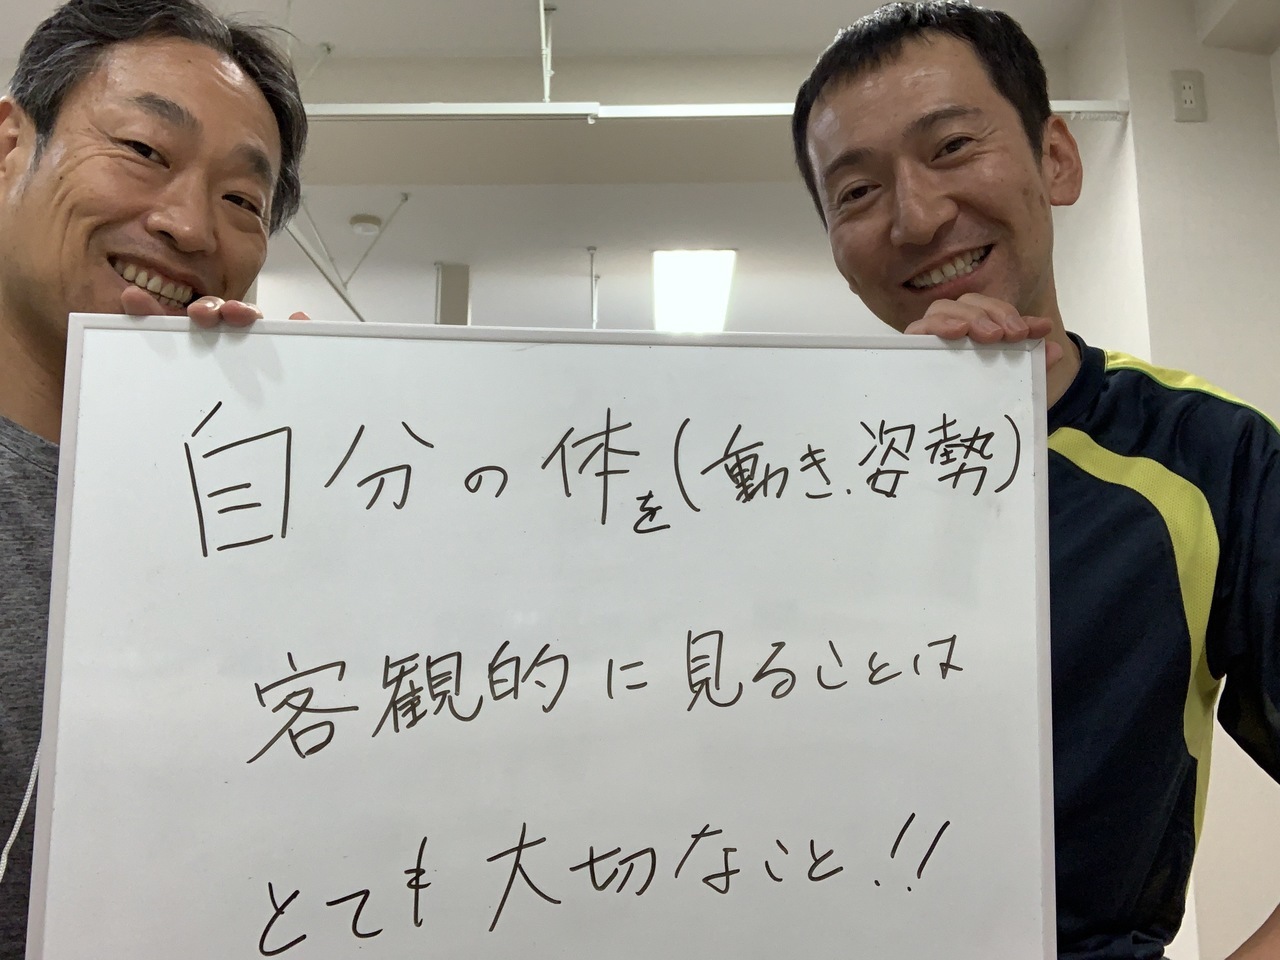 自分の体を(動き、姿勢)
客観的に見ることは
とても大切なこと!!